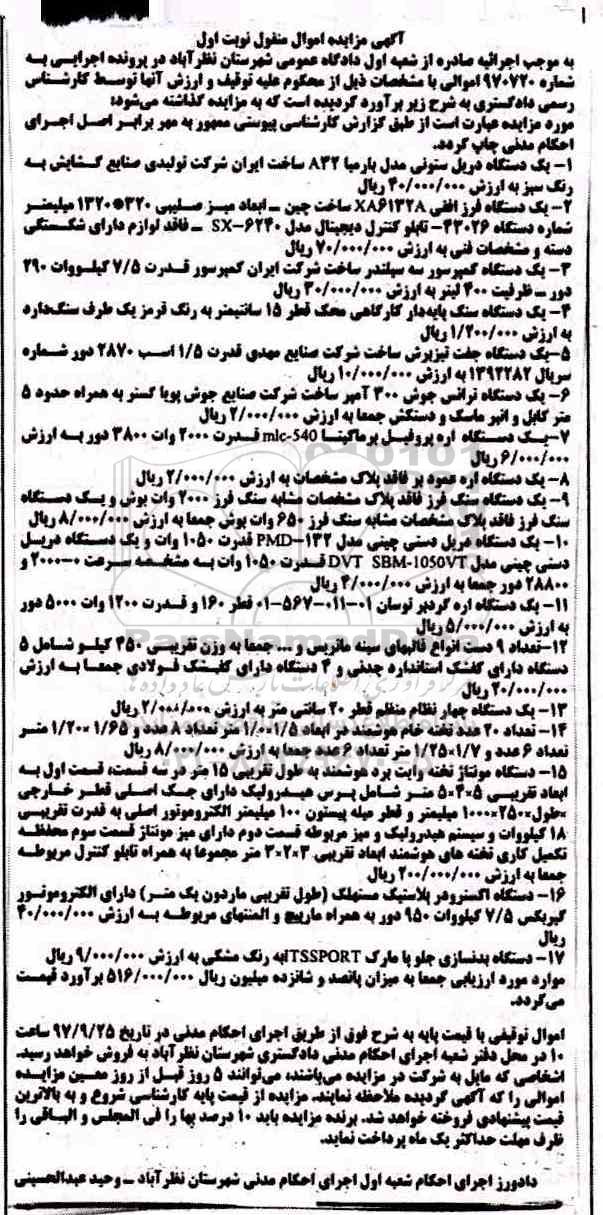 آگهی مزایده اموال منقول نوبت اول
به موجب اجرائیه صادره از شعبه اول دادگاه عمومی شهرستان نظرآباد در پرونده اجرایی به
شماره ۹۷۰۷۲۰ اموالی با مشخصات ذیل از محکوم علیه توقیف و ارزش آنها توسط کارشناس
رسمی دادگستری به شرح زیر برآورد گردیده است که به مزایده گذاشته می‌شود:
مورد مزایده عبارت است از طبق گزارش کارشناسی پیوستی ممهور به مهر برابر اصل اجرای
احکام مدنی چاپ گردد.
۱- یک دستگاه دریل ستونی مدل بارمبا A۳۲ ساخت ایران شرکت تولیدی صنایع گشایش به
رنگ سبز به ارزش ۴۰/۰۰۰/۰۰۰ ریال
۲- یک دستگاه فرز افقی XA۶۱۳۲A ساخت چین – ابعاد میز صلیبی ۳۲۰*۱۳۲۰ میلیمتر
شماره دستگاه ۴۳۰۲۶- تابلو کنترل دیجیتال مدل SX-۶۲۴۰ – فاقد لوازم دارای شکستگی
دسته و مشخصات فنی به ارزش ۷۰/۰۰۰/۰۰۰ ریال
۳- یک دستگاه کمپرسور سه سیلندر ساخت شرکت ایران کمپرسور قدرت ۷/۵ کیلووات ۲۹۰
دور – ظرفیت ۴۰۰ لیتر به ارزش ۳۰/۰۰۰/۰۰۰ ریال
۴- یک دستگاه سنگ پایه‌دار کارگاهی محک قطر ۱۵ سانتیمتر به رنگ قرمز یک طرف سنگ‌دارد
به ارزش ۱/۲۰۰/۰۰۰ ریال
۵-یک دستگاه جفت تیزبرش ساخت شرکت صنایع مهدی قدرت ۱/۵ اسب ۲۸۷۰ دور شماره
سریال ۱۳۹۲۲۸۲ به ارزش ۱۰/۰۰۰/۰۰۰ ریال
۶- یک دستگاه ترانس جوش ۳۰۰ آمپر ساخت شرکت صنایع جوش پویا گستر به همراه حدود ۵
متر کابل و انبر ماسک و دستکش جمعا به ارزش ۲/۰۰۰/۰۰۰ ریال
۷-یک دستگاه اره پروفیل بر ماکیتا mlc-540 قدرت ۲۰۰۰ وات ۳۸۰۰ دور به ارزش
۶/۰۰۰/۰۰۰ ریال
۸- یک دستگاه اره عمود بر فاقد پلاک مشخصات به ارزش ۲/۰۰۰/۰۰۰ ریال
۹- یک دستگاه سنگ فرز فاقد پلاک مشخصات مشابه سنگ فرز ۲۰۰۰ وات بوش و یک دستگاه
سنگ فرز فاقد پلاک مشخصات مشابه سنگ فرز ۶۵۰ وات بوش جمعا به ارزش ۸/۰۰۰/۰۰۰ ریال
۱۰- یک دستگاه دریل دستی چینی مدل PMD-۱۳۲ قدرت ۱۰۵۰ وات و یک دستگاه دریل
دستی چینی مدل DVT SBM-1050VT قدرت ۱۰۵۰ وات به مشخصه سرعت ۰-۲۰۰۰ و
۲۸۸۰۰ دور جمعا به ارزش ۴/۰۰۰/۰۰۰ ریال
۱۱- یک دستگاه اره گردبر توسان ۰۱-۰۱۱-۵۶۷-۰۱ قطر ۱۶۰ و قدرت ۱۲۰۰ وات ۵۰۰۰ دور
به ارزش ۵/۰۰۰/۰۰۰ ریال
۱۲-تعداد ۹ دست انواع قالبهای سینه ماتریس و ... جمعا به وزن تقریبی ۴۵۰ کیلو شامل ۵
دستگاه دارای کفشک استاندارد چدنی و ۴ دستگاه دارای کفشک فولادی جمعا به ارزش
۲۰/۰۰۰/۰۰۰ ریال
۱۳- یک دستگاه چهار نظام منظم قطر ۲۰ سانتی متر به ارزش ۲/۰۰۰/۰۰۰ ریال
۱۴- تعداد ۲۰ عدد تخته خام هوشمند در ابعاد ۱/۵*۱/۰۰ متر تعداد ۸ عدد و ۱/۶۵*۱/۲۰ متر
تعداد ۶ عدد و ۱/۷*۱/۲۵ متر تعداد ۶ عدد جمعا به ارزش ۸/۰۰۰/۰۰۰ ریال
۱۵- دستگاه مونتاژ تخته وایت برد هوشمند به طول تقریبی ۱۵ متر در سه قسمت، قسمت اول به
ابعاد تقریبی ۵×۴×۵ متر شامل پرس هیدرولیک دارای جک اصلی قطر خارجی
×طول=۲۵۰×۱۰۰۰ میلیمتر و قطر میله پیستون ۱۰۰ میلیمتر الکتروموتور اصلی به قدرت تقریبی
۱۸ کیلووات و سیستم هیدرولیک و میز مربوطه قسمت دوم دارای میز مونتاژ قسمت سوم محفظه
تکمیل کاری تخته های هوشمند ابعاد تقریبی ۳×۲×۳ متر مجموعا به همراه تابلو کنترل مربوطه
جمعا به ارزش ۲۰۰/۰۰۰/۰۰۰ ریال
۱۶- دستگاه اکسترودر پلاستیک مستهلک (طول تقریبی ماردون یک متر) دارای الکتروموتور
گیربکس ۷/۵ کیلووات ۹۵۰ دور به همراه مارپیچ و المنتهای مربوطه به ارزش ۴۰/۰۰۰/۰۰۰
ریال
۱۷- دستگاه بدنسازی جلو پا مارک TSSPORTابه رنگ مشکی به ارزش ۹/۰۰۰/۰۰۰ ریال
موارد مورد ارزیابی جمعا به میزان پانصد و شانزده میلیون ریال ۵۱۶/۰۰۰/۰۰۰ برآورد قیمت
می‌گردد.
اموال توقیفی با قیمت پایه به شرح فوق از طریق اجرای احکام مدنی در تاریخ ۹۷/۹/۲۵ ساعت
۱۰ در محل دفتر شعبه اجرای احکام مدنی دادگستری شهرستان نظرآباد به فروش خواهد رسید.
اشخاصی که مایل به شرکت در مزایده می‌باشند، می‌توانند ۵ روز قبل از روز معین مزایده
اموالی را که آگهی گردیده ملاحظه نمایند. مزایده از قیمت پایه کارشناسی شروع و به بالاترین
قیمت پیشنهادی فروخته خواهد شد. برنده مزایده باید ۱۰ درصد بها را فی المجلس و الباقی را
ظرف مهلت حداکثر یک ماه پرداخت نماید.
دادورز اجرای احکام شعبه اول اجرای احکام مدنی شهرستان نظرآباد – وحید عبدالحسینی